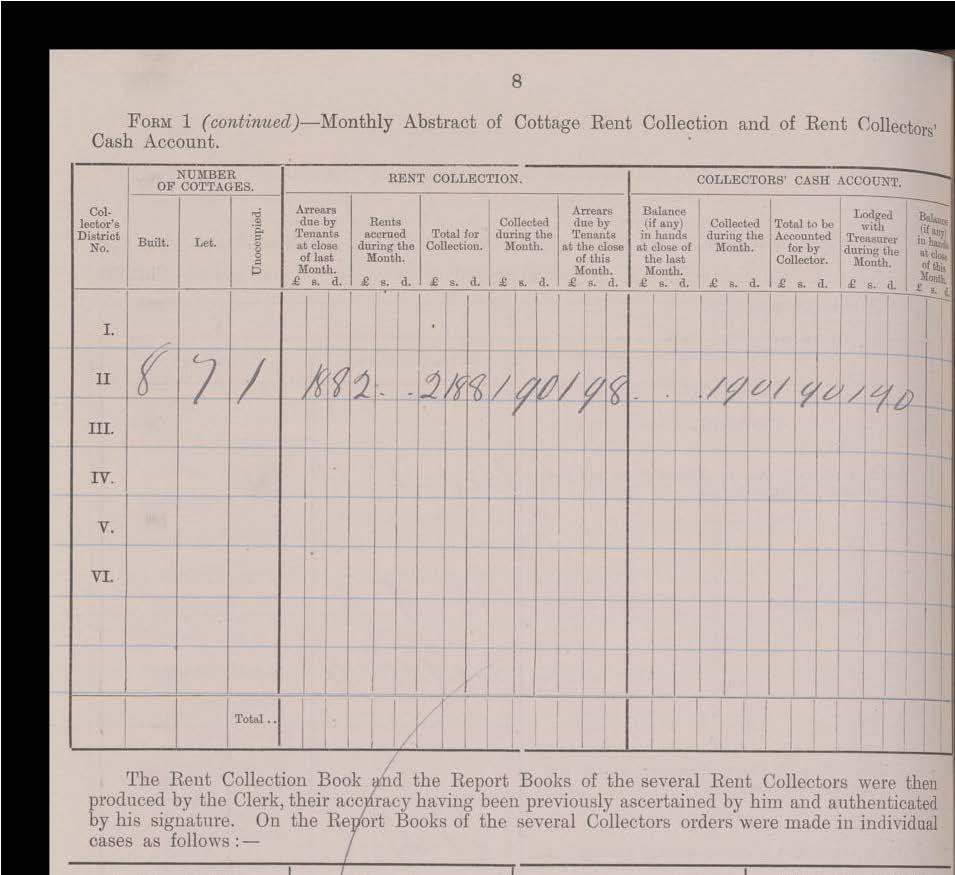 8
FORM 1 (continued)—Monthly Abstract of Cottage Rent Collection and of Rent Collectors' Cash Account.
Collector's District No.
NUMBER OF COTTAGES.
Built.
Let.
Unoccupied.
RENT COLLECTION.
Arrears due by Tenants at close of last Month. £ s. d.
Rents accrued during the Month. £ s. d.
Total for Collection. £ s. d.
Collected during the Month. £ s. d.
Arrears due by Tenants at the close of this Month. £ s. d.
COLLECTORS' CASH ACCOUNT.
Balance (if any) in hands at close of the last Month. £ s. d.
Collected during the Month. £ s. d.
Total to be Accounted for by Collector. £ s. d.
Lodged with Treasurer during the Month. £ s. d.
Balance (if any) in hands at close of this Month. £ s. d.
I.
II 8 7 1 18 8 2 . . 2 18 8 1 9 0 1 9 8 . . . 1 9 0 1 9 0 1 9 0
III.
IV.
V.
VI.
Total ..
The Rent Collection Book and the Report Books of the several Rent Collectors were then
produced by the Clerk, their accuracy having been previously ascertained by him and authenticated
by his signature. On the Report Books of the several Collectors orders were made in individual
cases as follows :—